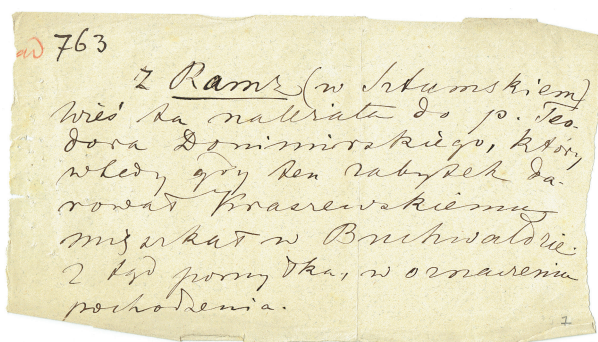 ad 763
Z Ramz (w Sztumskiem)
wieś ta należała do p. Teo-
dora Donimirskiego, który
wtedy gdy ten zabytek da-
rował Kraszewskiemu
mieszkał w Buchwaldzie.
Z tąd pomyłka, w oznaczeniu
pochodzenia.
1